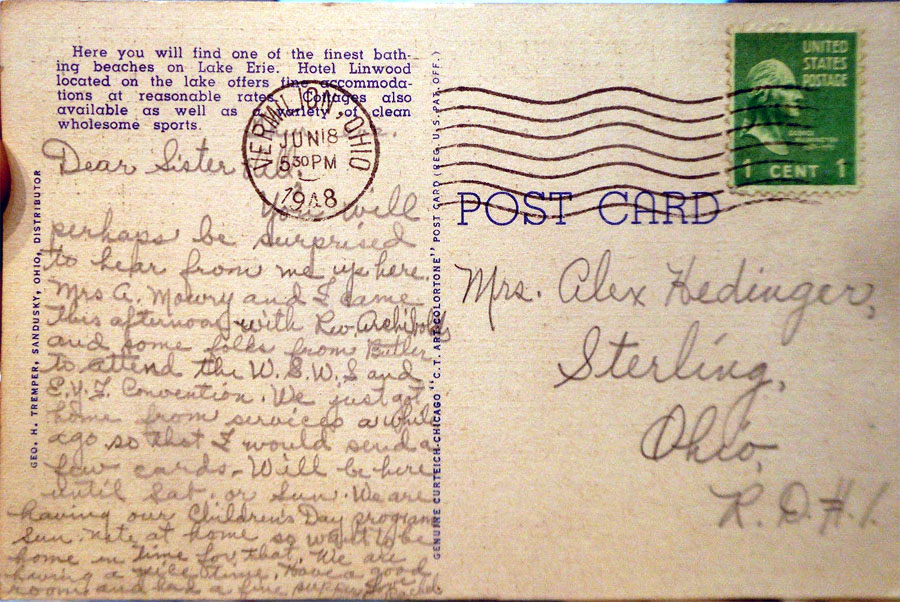 Here you will find one of the finest bath-
ing beaches on Lake Erie. Hotel Linwood
located on the lake offers fine accommoda-
tions at reasonable rates. Cottages also
available as well as a variety of clean
wholesome sports.
VERMILION, OHIO
JUN 18
5 30 PM
1948
UNITED
STATES
POSTAGE
1 CENT 1
POST CARD
GEO. H. TREMPER, SANDUSKY, OHIO, DISTRIBUTOR
GENUINE CURTEICH-CHICAGO "C.T. ART-COLORTONE" POST CARD (REG. U.S. PAT. OFF.)
Dear Sister
You will
perhaps be surprised
to hear from me up here.
Mrs A. Mowry and I came
this afternoon with Rev. Archibolds
and some folks from Butler
to attend the W.S.W.S and
E.Y.F. Convention. We just got
home from services a while
ago so that I would send a
few cards. Will be here
until Sat. or Sun. We are
having our Children's Day program
Sun. nite at home so want to be
home in time for that. We are
having a nice time. Have a good
room and had a fine supper. Love
Mrs. Alex Hedinger,
Sterling,
Ohio,
R.D.#1.